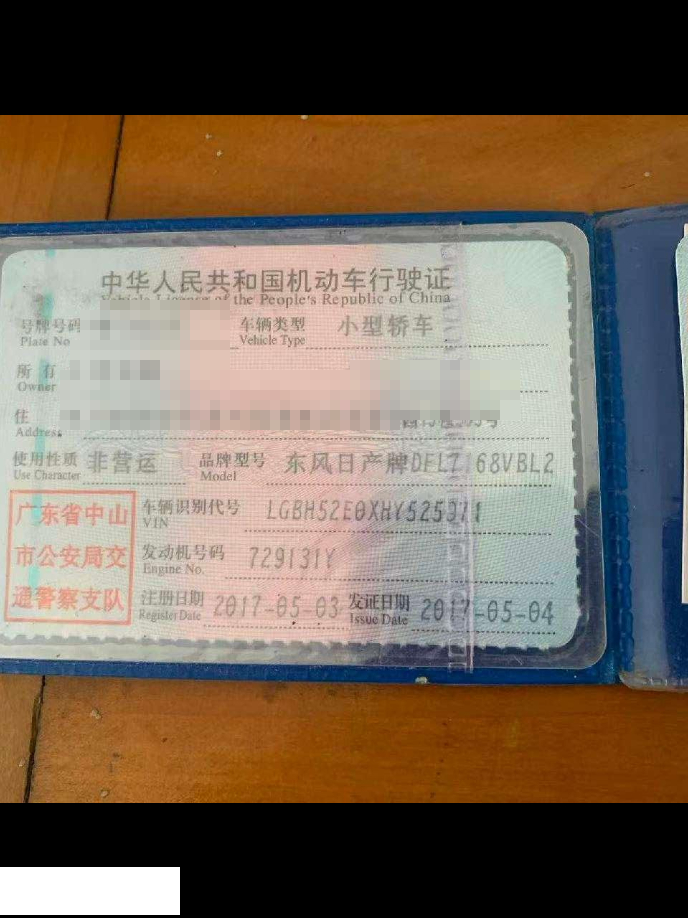 中华人民共和国机动车行驶证
Vehicle License of the People's Republic of China
号牌号码 车辆类型 小型轿车
Plate No Vehicle Type
所有
Owner
住
Address 号
使用性质 非营运 品牌型号 东风日产牌DFL7168VBL2
Use Character Model
广东省中山
市公安局交
通警察支队
车辆识别代号 LGBH52E0XHY525371
VIN
发动机号码 729131Y
Engine No.
注册日期 2017-05-03 发证日期 2017-05-04
Register Date Issue Date